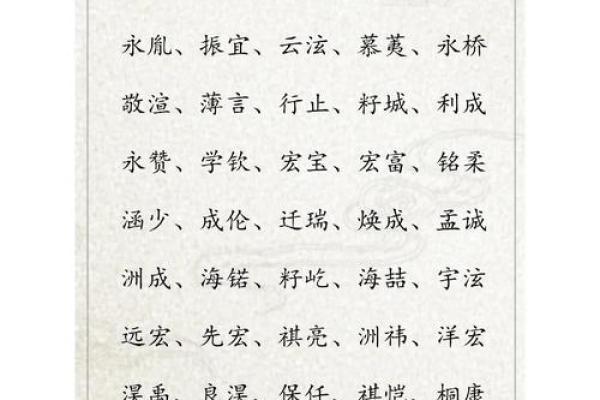 永胤、振宜、云泫、慕荑、永桥
敬渲、薄言、行止、籽城、利成
永赞、学钦、宏宝、宏富、铭柔
涵少、成伦、迁瑞、焕成、孟诚
洲成、海锘、籽屹、海喆、宇泫
远宏、先宏、祺亮、洲祎、洋宏
淏禹、良淏、保任、祺恺、桐康